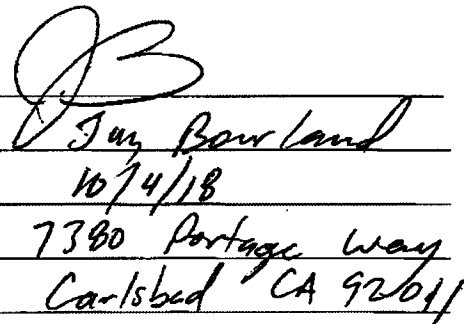 JB
Jay Bourland
10/4/18
7380 Portage Way
Carlsbad CA 92011